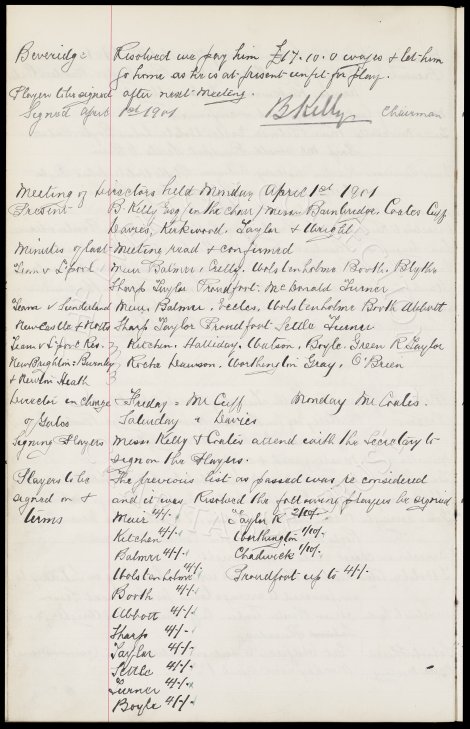 Beveridge Resolved we pay him £17.10.0 wages & let him
go home as he is at present unfit for play.
Players to be signed after next meeting.
Signed April 1st 1901 B Kelly Chairman
Meeting of Directors held Monday April 1st 1901
Present B Kelly Esq (in the chair) Messrs Bainbridge, Coates Cuff
Davies, Kirkwood, Taylor & Wright
Minutes of last Meeting read & confirmed
Team v L'pool Muir Balmer, Eccles, Wolstenholme Booth, Blythe
Sharp Taylor Proudfoot McDonald Turner
Team v Sunderland Muir, Balmer, Eccles, Wolstenholme Booth Abbott
Newcastle & Notts Sharp Taylor Proudfoot Settle Turner
Team v L'pool Res. Kitchen, Halliday, Watson, Boyle, Green R Taylor
New Brighton: Burnley Roche Dawson, Worthington Gray, O'Brien
& Newton Heath
Director in charge Friday = Mr Cuff Monday Mr Coates.
of Gates Saturday " Davies
Signing Players Messrs Kelly & Coates attend with the Secretary to
sign on the Players.
Players to be The previous list as passed was re considered
signed on & and it was Resolved the following players be signed
terms Muir 4/-/- Taylor R 2/10/-
Kitchen 4/-/- Worthington 1/10/-
Balmer 4/-/- Chadwick 1/10/-
Wolstenholme 4/-/- Proudfoot up to 4/-/-
Booth 4/-/-
Abbott 4/-/-
Sharp 4/-/-
Taylor 4/-/-
Settle 4/-/-
Turner 4/-/-
Boyle 4/-/-